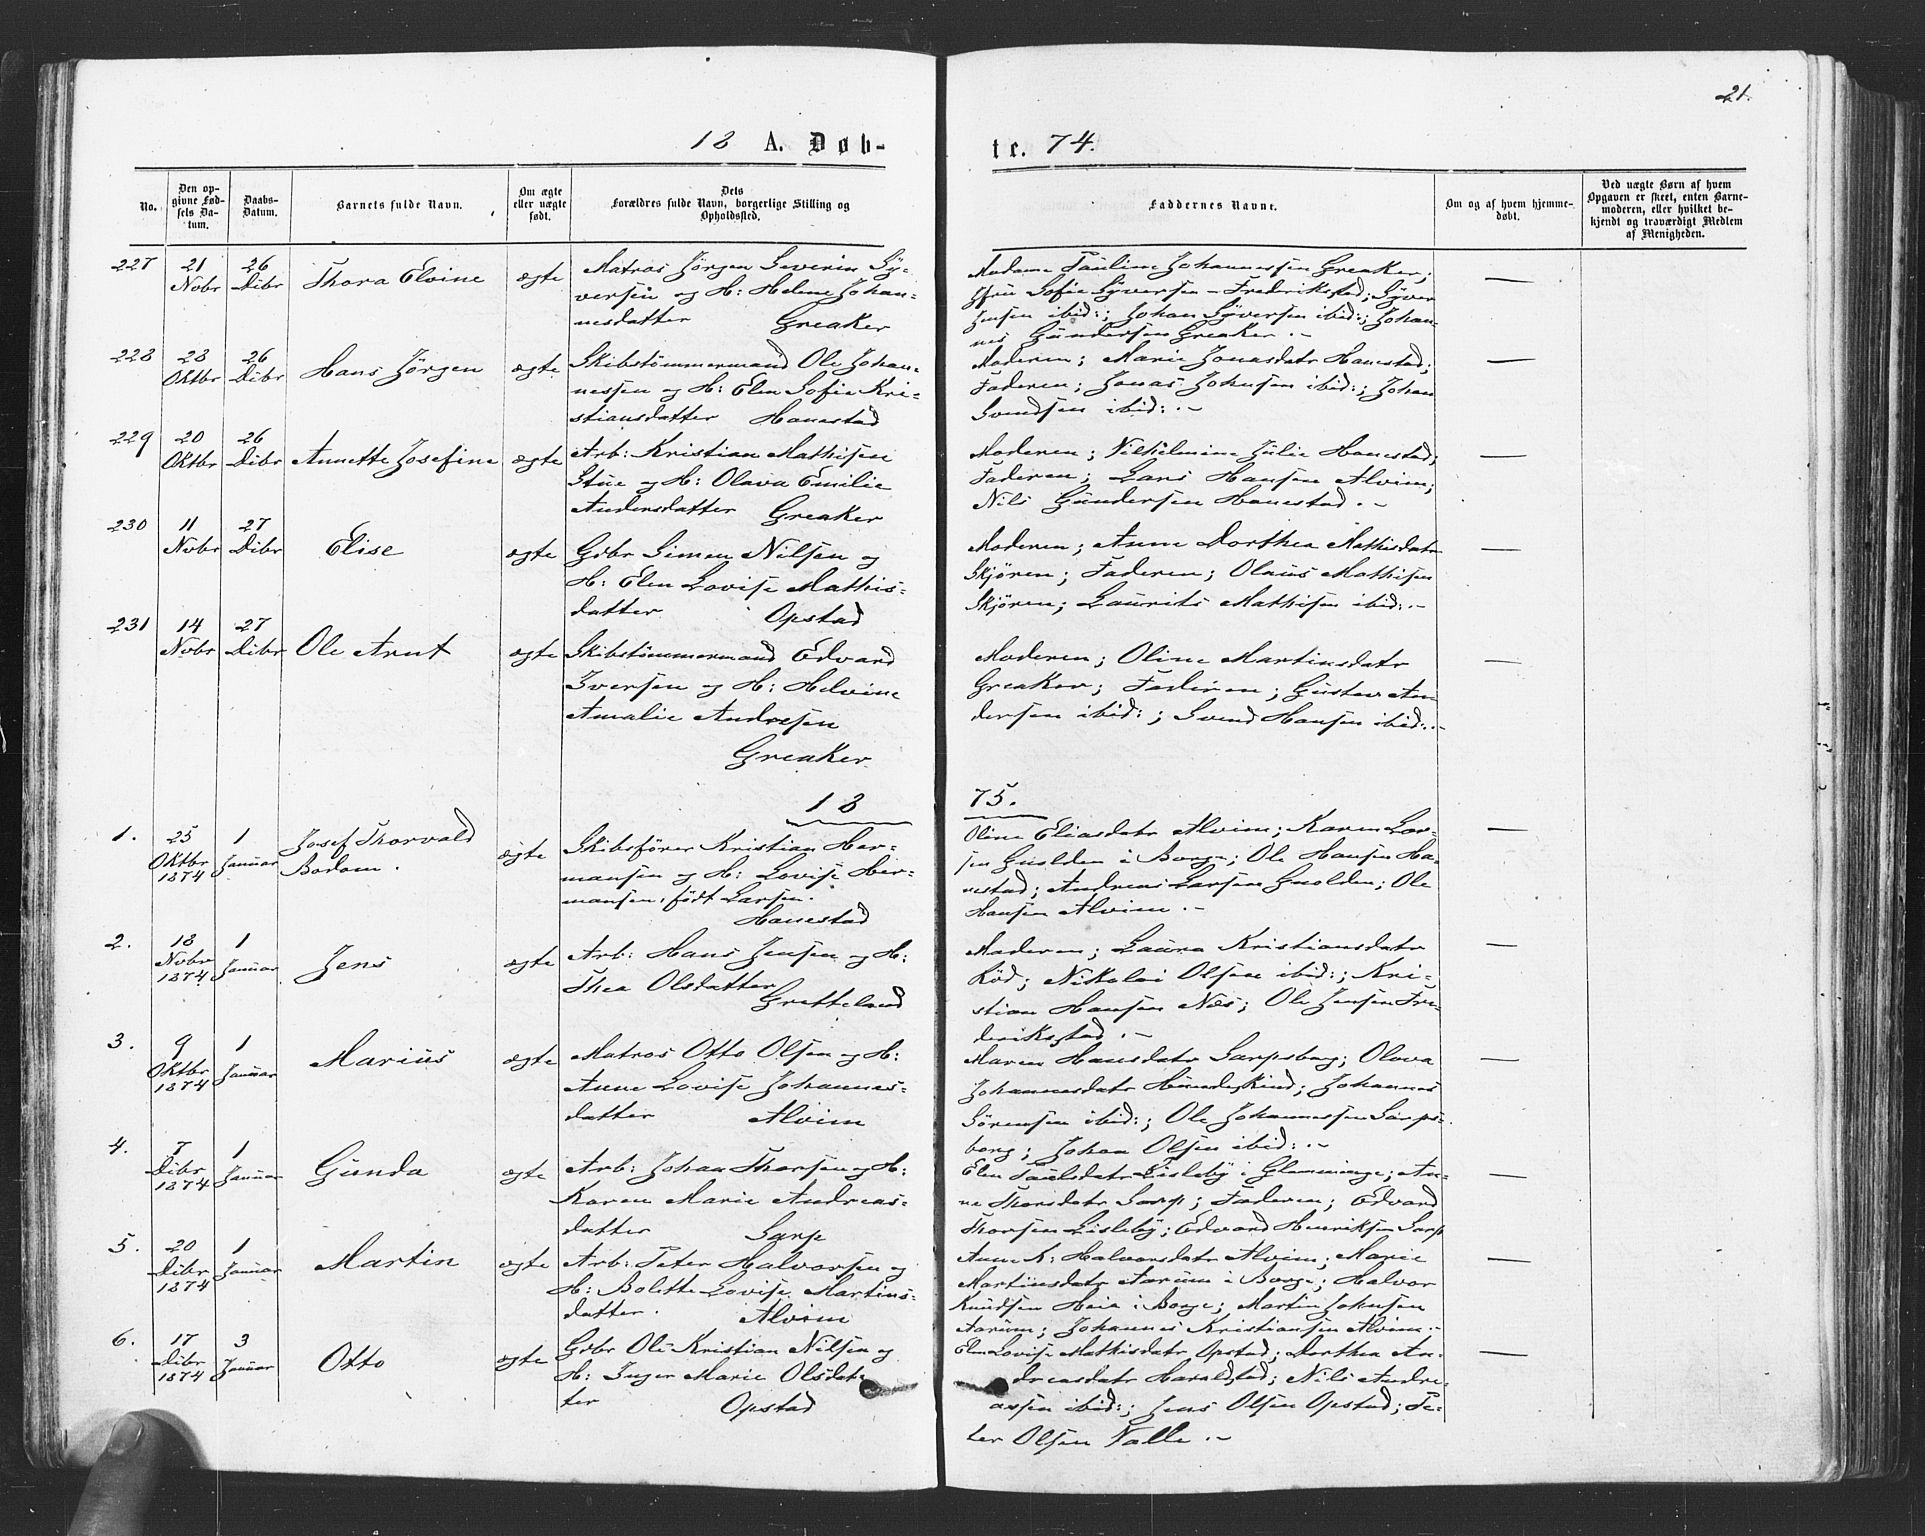 21.
18 A. Døb-
te. 74.
No.
Den op-
givne Fød-
sels Da-
tum.
Daabs-
Datum.
Barnets fulde Navn.
Om ægte
eller uægte
født.
Dets
Forældres fulde Navn, borgerlige Stilling og
Opholdssted.
Faddernes Navne.
Om og af hvem hjemme-
døbt.
Ved uægte Børn af hvem
Opgaven er skeet, enten Barne-
moderen, eller hvilket be-
kjendt og troværdigt Medlem
af Menigheden.
227
21
Nobr
26
Dibr
Thora Elvine
ægte
Matros Jørgen Severin Sÿ-
versen og H: Helene Johan-
nesdatter Greaker
Madame Pauline Johannessen Greaker;
Sofie Syversen - Frederikstad; Syver
Jensen ibid:; Johan Syversen ibid:; Johan-
nes Gundersen Greaker. -
—
228
28
Oktbr
26
Dibr
Hans Jørgen
ægte
Skibstømmermand Ole Johan-
nessen og H: Elen Sofie Kri-
stiansdatter Hanestad
Moderen; Marie Jonasdatr Hanestad;
Faderen; Jonas Johnsen ibid:; Johan
Svendsen ibid: . -
—
229
20
Oktbr
26
Dibr
Annette Josefine
ægte
Arb: Kristian Mathisen
Stue og H: Olava Emilie
Andersdatter Greaker
Moderen; Vilhelmine Julie Hanestad;
Faderen; Lars Hansen Alvim;
Nils Gundersen Hanestad. -
—
230
11
Nobr
27
Dibr
Elise
ægte
Grbr Simen Nilsen og
H: Elen Lovise Mathis-
datter Opstad
Moderen; Anne Dorthea Mathisdatr
Skjøren; Faderen; Olaus Mathisen
Skjøren; Laurits Mathisen ibid:. -
—
231
14
Nobr
27
Dibr
Ole Arnt
ægte
Skibstömmermand Edvard
Iversen og H: Helvine
Amalie Andresen
Greaker
Moderen; Oline Martinsdatr
Greaker; Faderen; Gustav An-
dersen ibid:; Svend Hansen ibid:. -
—
18
75.
1.
25
Oktbr
1874
1
Januar
Josef Thorvald
Bodom.
ægte
Skibsfører Kristian Her-
mansen og H: Lovise Her-
mansen, født Larsen.
Hanestad
Oline Eliasdatr Alvim; Karen Lar-
sen Guslden i Borge; Ole Hansen Ha-
nestad; Andreas Larsen; Ole
Hansen Alvim. -
—
2.
18
Nobr
1874
1
Januar
Jens
ægte
Arb: Hans Jensen og H:
Thea Olsdatter
Gretteland
Moderen; Laura Kristiansdatr
Röd; Nikolai Olsen ibid:; Kri-
stian Hansen Næs; Ole Jensen Fre-
derikstad. -
—
3.
9
Oktbr
1874
1
Januar
Marius
ægte
Matros Otto Olsen og H:
Anne Lovise Johannes-
datter Alvim
Maren Hansdatr Sarpsborg; Olava
Johannesdatr Hundskind; Johannes
Sörensen ibid:; Ole Johannessen Sarps-
borg; Johan Olsen ibid:. -
—
4.
7
Dibr
1874
1
Januar
Gunda
ægte
Arb: Johan Thorsen og H:
Karen Marie Andreas-
datter Sarp
Elen Paulsdatr Lisleby i Glemminge; An-
ne Thorsdatr Sarp; Faderen; Edvard
Thorsen Lisleby; Edvard Henriksen Sarp
—
5.
20
Dibr
1874
1
Januar
Martin
ægte
Arb: Peter Halvorsen og
H: Bolette Lovise Martins-
datter. Alvim
Anne K: Halvorsdatr Alvim; Marie
Martinsdatr Aarum i Borge; Halvor
Knudsen Heie i Borge; Martin Johnsen
Aarum; Johannes Kristiansen Alvim. -
—
6.
17
Dibr
1874
3
Januar
Otto
ægte
Grbr Ole Kristian Nilsen og
H: Inger Marie Olsdat-
ter Opstad
Elen Lovise Mathisdatr Opstad; Dorthea An-
dreasdatr Haralstad; Nils Andre-
assen ibid:; Jens Olsen Opstad; Pe-
ter Olsen Valle. -
—